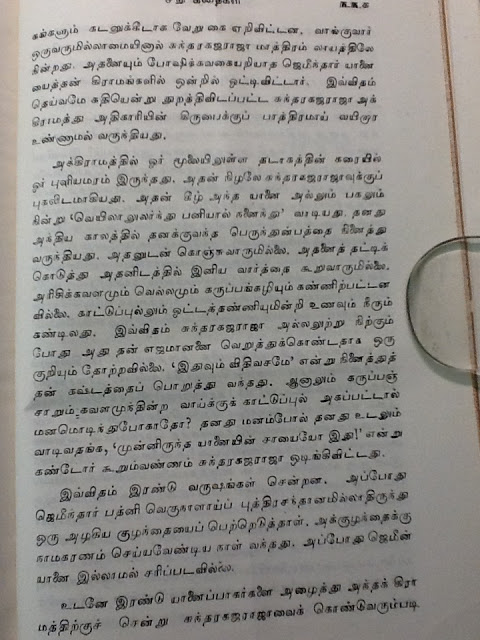 கங்களும் கடனுக்கீடாக வேறு கை ஏறிவிட்டன. வாங்குவார்
ஒருவருமில்லாமையினால் சுந்தரகஜராஜா மாத்திரம் லாயத்திலே
நின்றது. அதனையும் போஷிக்கவகையறியாத ஜெமீந்தார் யானை
யைத்தன் கிராமங்களில் ஒன்றில் ஓட்டிவிட்டார். இவ்விதம்
தெய்வமே கதியென்று துறத்திவிடப்பட்ட சுந்தரகஜராஜா அக்
கிராமத்து அதிகாரியின் கிருபைக்குப் பாத்திரமாய் வயிறார
உண்ணாமல் வருந்தியது.
அக்கிராமத்தில் ஓர் மூலையிலுள்ள தடாகத்தின் கரையில்
ஓர் புளியமரம் இருந்தது. அதன் நிழலே சுந்தரகஜராஜாவுக்குப்
புகலிடமாகியது. அதன் கீழ் அந்த யானை அல்லும் பகலும்
நின்று 'வெயிலாலுலர்ந்து பனியால் நனைந்து' வாடியது. தனது
அந்திய காலத்தில் தனக்குவந்த பெருந்துன்பத்தை நினைத்து
வருந்தியது. அதனுடன் கொஞ்சுவாருமில்லை. அதனைத் தட்டிக்
கொடுத்து அதனிடத்தில் இனிய வார்த்தை கூறுவாருமில்லை.
அரிசிக்கவளமும் வெல்லமும் கருப்பங்கழியும் கண்ணிற்பட்டன
வில்லை. காட்டுப்புல்லும் ஓட்டத்தண்ணியுமின்றி உணவும் நீரும்
கண்டிலது. இவ்விதம் சுந்தரகஜராஜா அல்லலுற்று நிற்கும்
போது அது தன் எஜமானனை வெறுத்துக்கொண்டதாக ஒரு
குறியும் தோற்றவில்லை. 'இதுவும் விதிவசமே' என்று நினைத்துத்
தன் கஷ்டத்தைப் பொறுத்து வந்தது. ஆனாலும் கருப்பஞ்
சாறும் கவளமுந்தின்ற வாய்க்குக் காட்டுப்புல் அகப்பட்டால்
மனமொடிந்துபோகாதோ? தனது மனம்போல் தனது உடலும்
வாடிவதங்க, 'முன்னிருந்த யானையின் சாயையோ இது!' என்று
கண்டோர் கூறும்வண்ணம் சுந்தரகஜராஜா ஒடுங்கிவிட்டது.
இவ்விதம் இரண்டு வருஷங்கள் சென்றன. அப்போது
ஜெமீந்தார் பத்னி வெகுநாளாய்ப் புத்திரசந்தானமில்லாதிருந்து
ஒரு அழகிய குழந்தையைப் பெற்றெடுத்தாள். அக்குழந்தைக்கு
நாமகரணம் செய்யவேண்டிய நாள் வந்தது. அப்போது ஜெமீன்
யானை இல்லாமல் சரிப்படவில்லை.
உடனே இரண்டு யானைப்பாகர்களை அழைத்து அந்தக் கிரா
மத்திற்குச் சென்று சுந்தரகஜராஜாவைக் கொண்டுவரும்படி